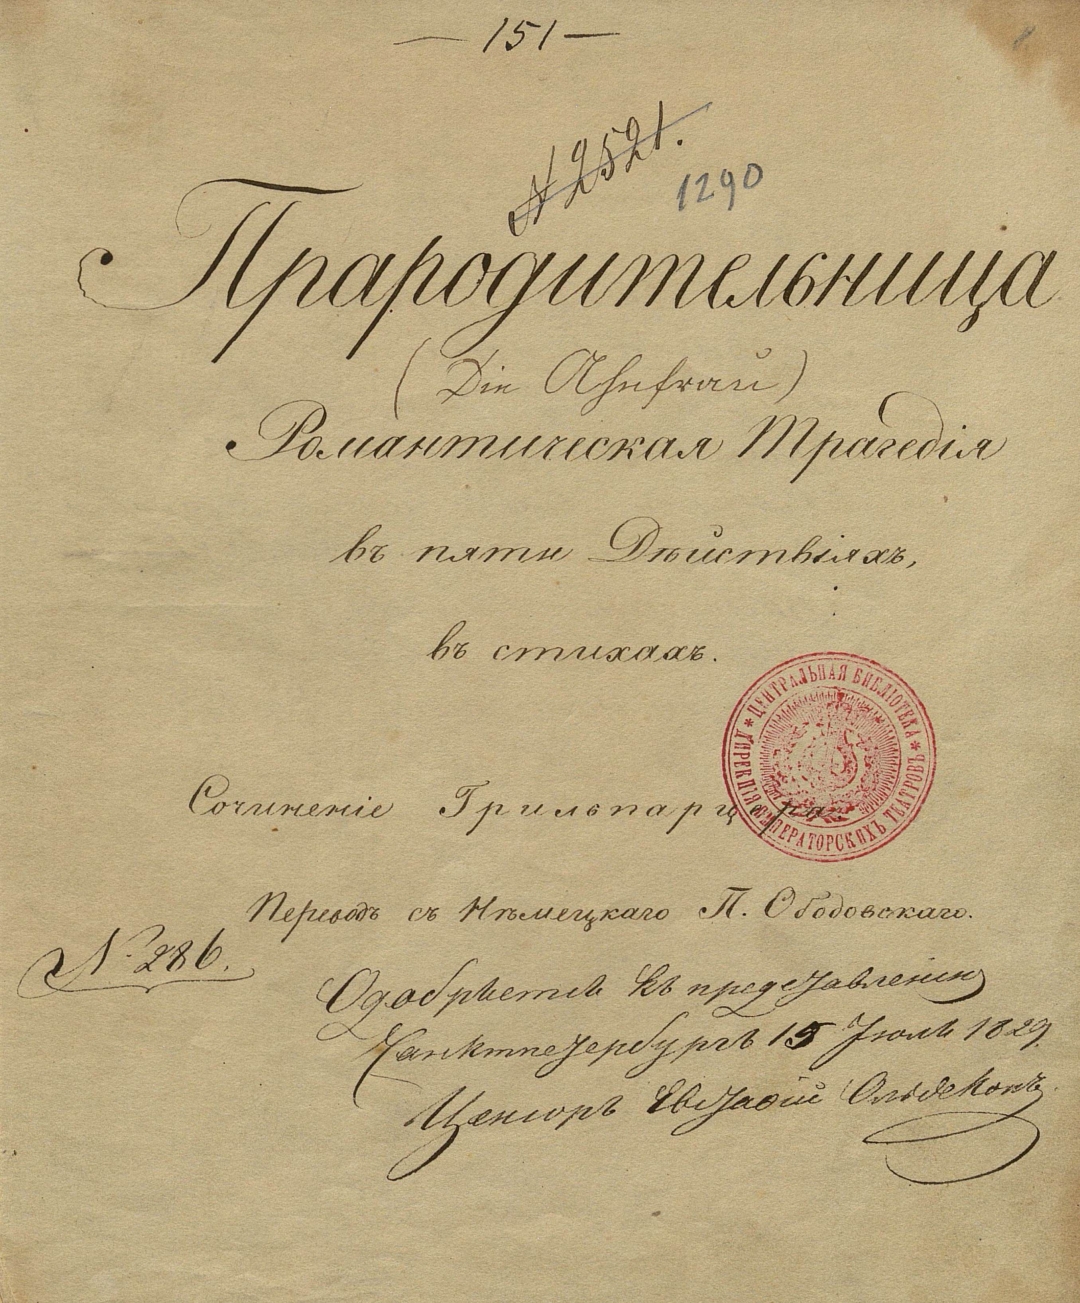 — 151 —
N 2521.
1290
Прародительница
(Die Ahnfrau)
Романтическая Трагедія
въ пяти Дѣйствіяхъ,
въ стихахъ.
ЦЕНТРАЛЬНАЯ БИБЛІОТЕКА
ДИРЕКЦІИ ИМПЕРАТОРСКИХЪ ТЕАТРОВЪ
Сочиненіе Грильпарцера.
Переводъ съ Нѣмецкаго П. Ободовскаго.
N. 286.
Одобряется къ представленію
Санктпетербургъ 15 Іюля 1829.
Цензоръ Евстафій Ольдекопъ.